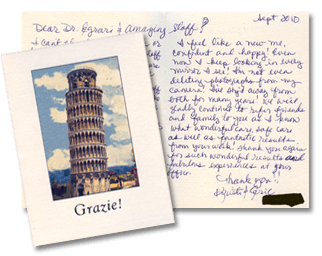 Sept 2010
Dear Dr. Egrari & Amazing Staff!
I can't
I feel like a new me,
confident and happy! Even
now I keep looking in every
mirror I see! I'm not even
deleting photographs from my
camera. I've shy'd away from
both for many years! We will
gladly continue to refer friends
and family to you as I know
what wonderful care, safe care
as well as fantastic results
from your work! Thank you again
for such wonderful results and
fabulous experiences at your
office.
Thank you!
Grazie!